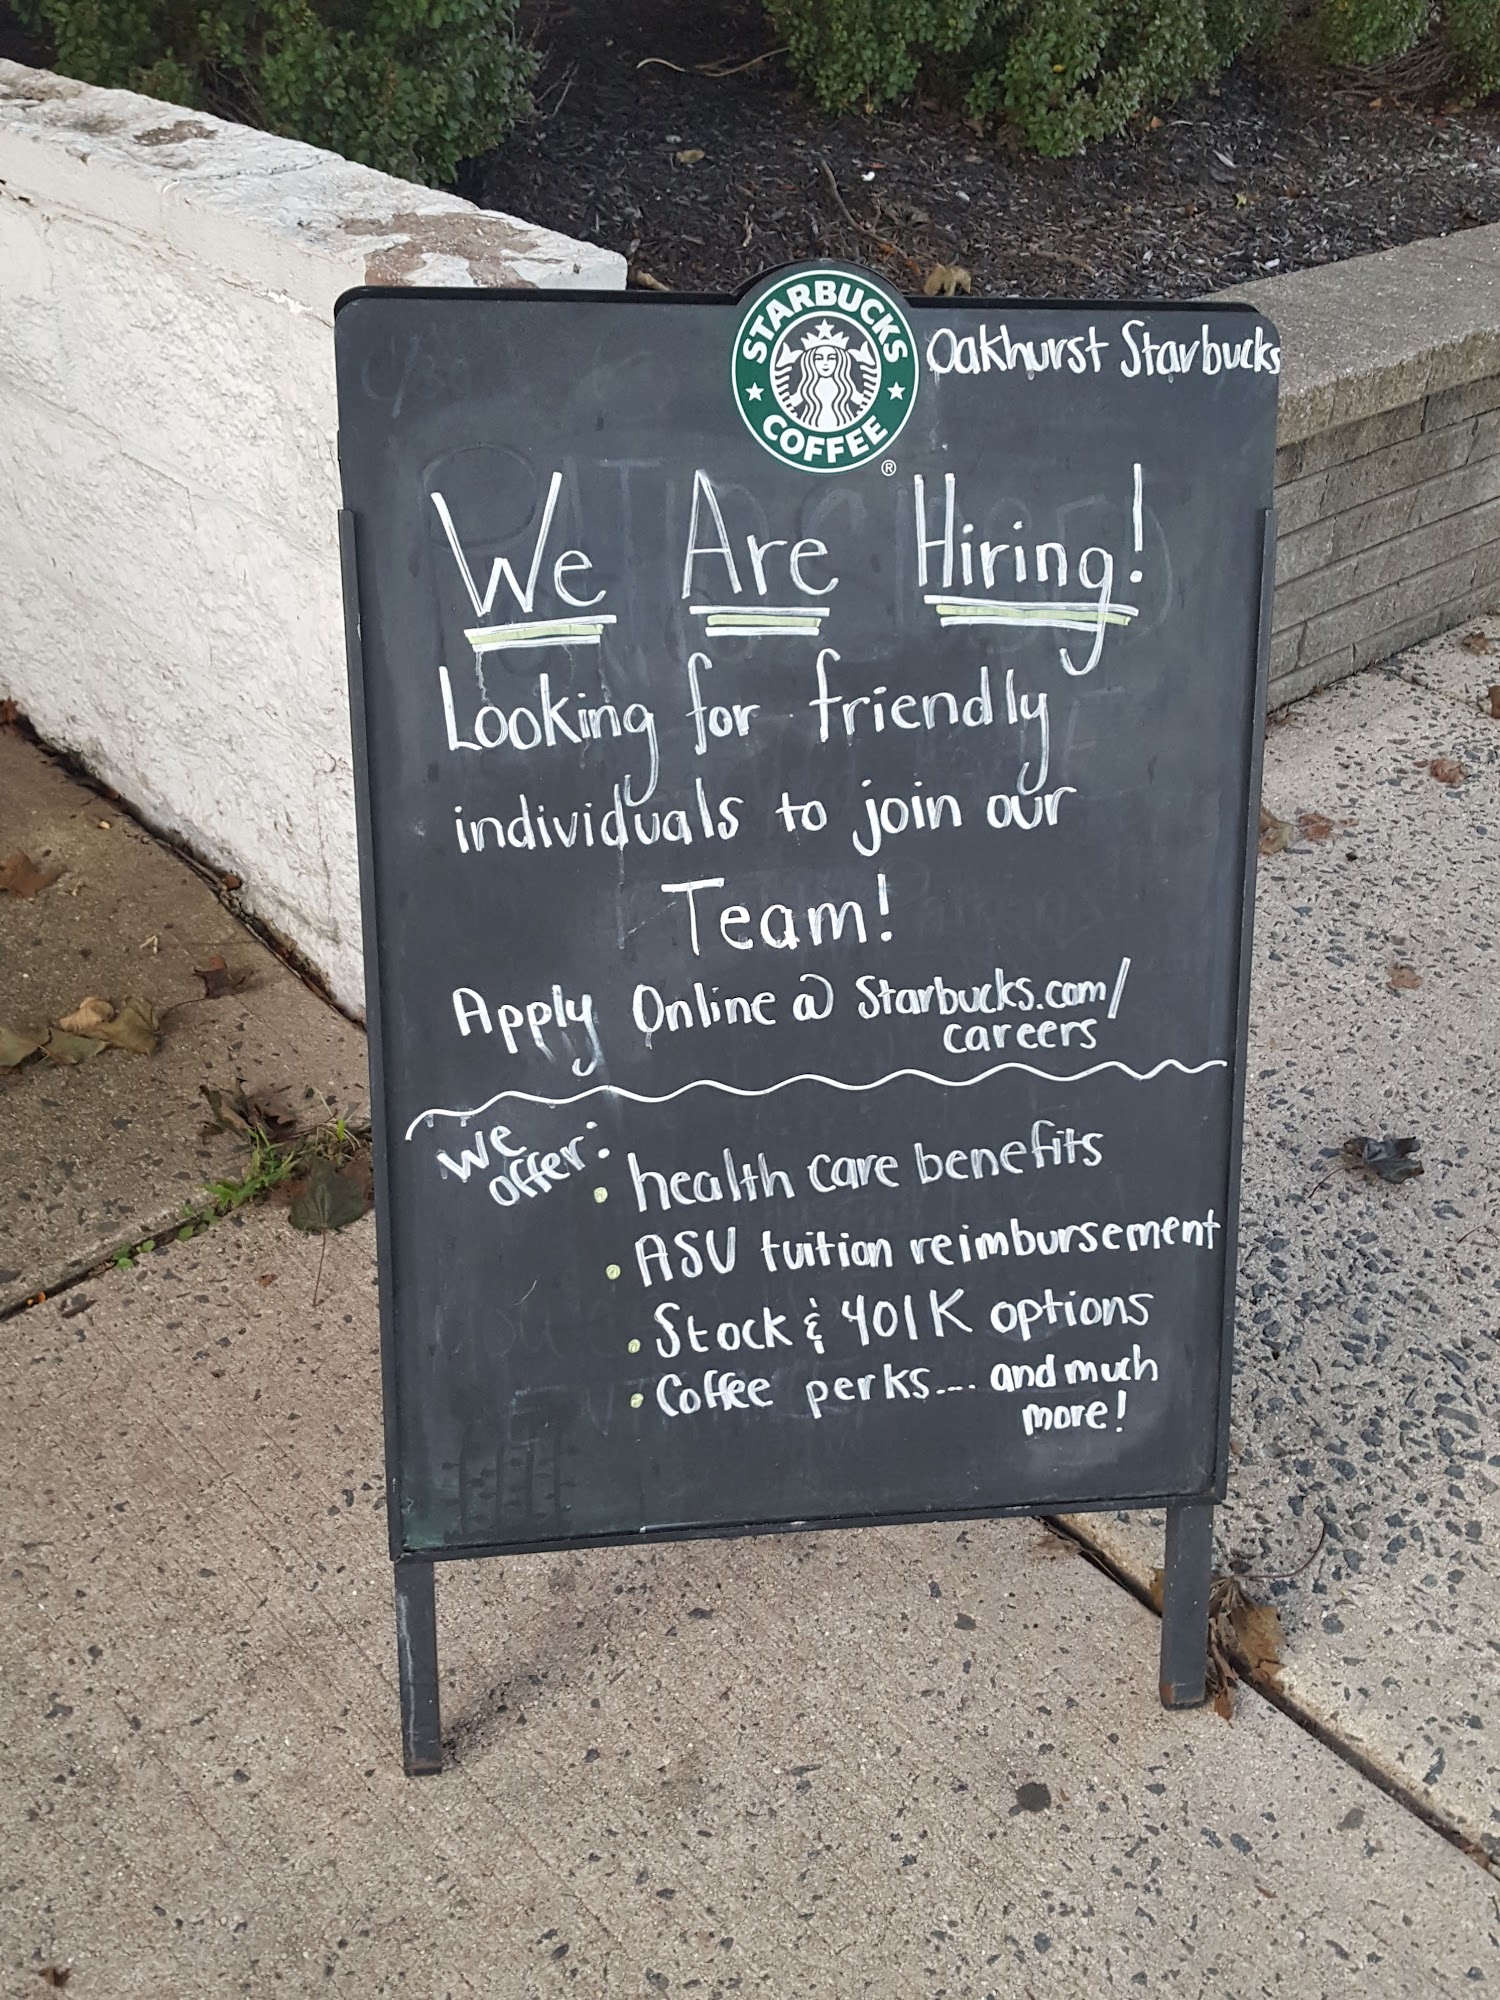 STARBUCKS
COFFEE
®
Oakhurst Starbucks
We Are Hiring!
Looking for friendly
individuals to join our
Team!
Apply Online @ Starbucks.com/
careers
We
offer:
• health care benefits
• ASU tuition reimbursement
• Stock & 401K options
• Coffee perks.... and much
more!